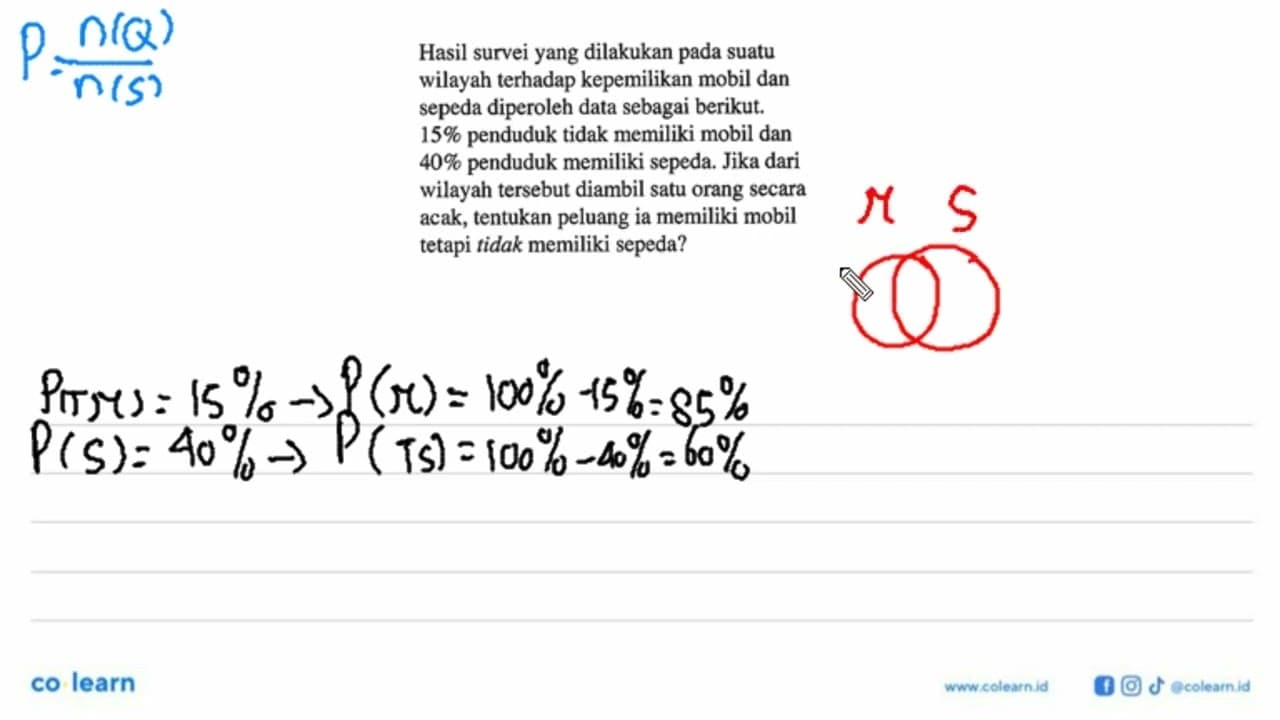 P = n(Q) / n(S)
Hasil survei yang dilakukan pada suatu
wilayah terhadap kepemilikan mobil dan
sepeda diperoleh data sebagai berikut.
15% penduduk tidak memiliki mobil dan
40% penduduk memiliki sepeda. Jika dari
wilayah tersebut diambil satu orang secara
acak, tentukan peluang ia memiliki mobil
tetapi tidak memiliki sepeda?
M S
P(TM) = 15% → P(M) = 100% - 15% = 85%
P(S) = 40% → P(TS) = 100% - 40% = 60%
co learn
www.colearn.id @colearn.id